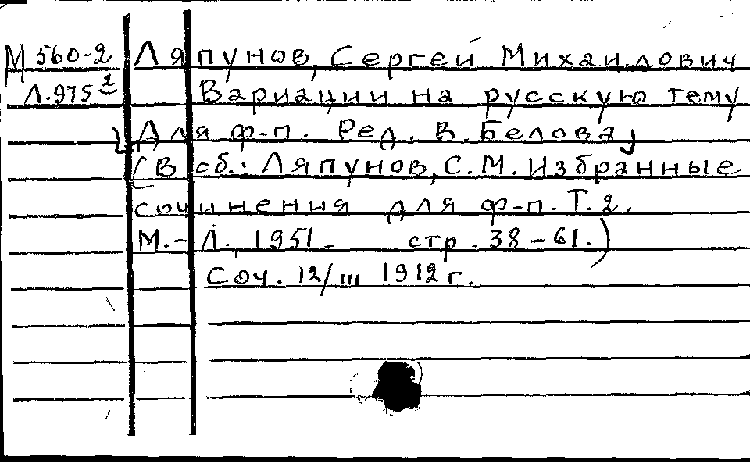 М 560-2 Ляпунов, Сергей Михайлович
Л.975² Вариации на русскую тему
[Для ф-п. Ред. В. Белова]
(В сб.: Ляпунов, С.М. Избранные
сочинения для ф-п. Т.2.
М.-Л., 1951. стр. 38-61.)
Соч. 12/III 1912 г.